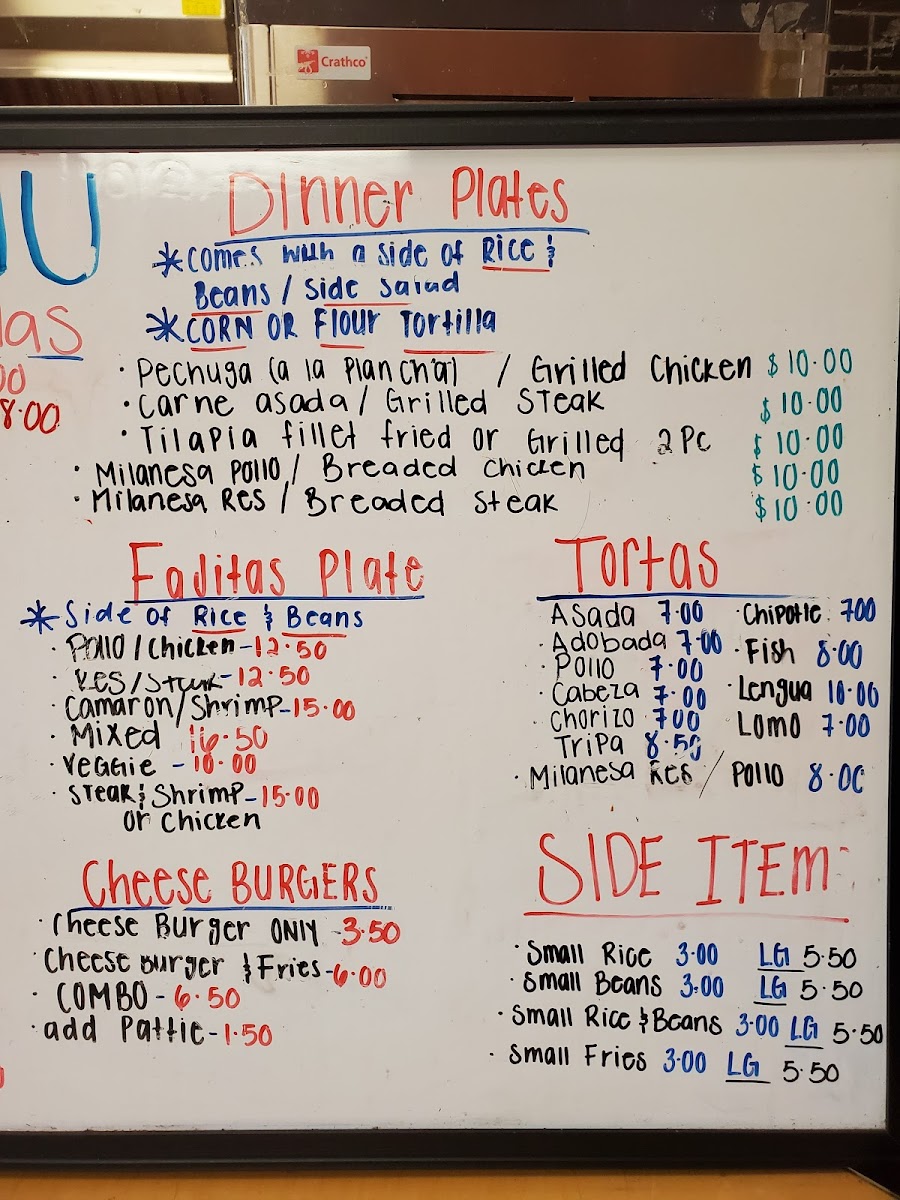 Crathco
Dinner Plates
*comes with a side of Rice &
Beans / Side Salad
*CORN OR Flour Tortilla
· Pechuga (a la Plancha) / Grilled Chicken $10.00
· Carne asada / Grilled Steak $10.00
· Tilapia fillet fried or Grilled 2 Pc $10.00
· Milanesa Pollo / Breaded Chicken $10.00
· Milanesa Res / Breaded Steak $10.00
las
00
8.00
Fajitas Plate
*Side of Rice & Beans
· Pollo / Chicken - 12.50
· Res / Steak - 12.50
· Camaron / Shrimp - 15.00
· Mixed 16.50
· Veggie - 10.00
· Steak & Shrimp - 15.00
or Chicken
Tortas
Asada 7.00 · Chipotle 700
· Adobada 7.00 · Fish 8.00
· Pollo 7.00
· Cabeza 7.00 · Lengua 10.00
· Chorizo 700 Lomo 7.00
Tripa 8.50
· Milanesa Res / Pollo 8.00
Cheese BURGERS
· Cheese Burger ONLY - 3.50
· Cheese Burger & Fries - 6.00
· COMBO - 6.50
· add Pattie - 1.50
SIDE ITEM:
· Small Rice 3.00 LG 5.50
· Small Beans 3.00 LG 5.50
· Small Rice & Beans 3.00 LG 5.50
· Small Fries 3.00 LG 5.50